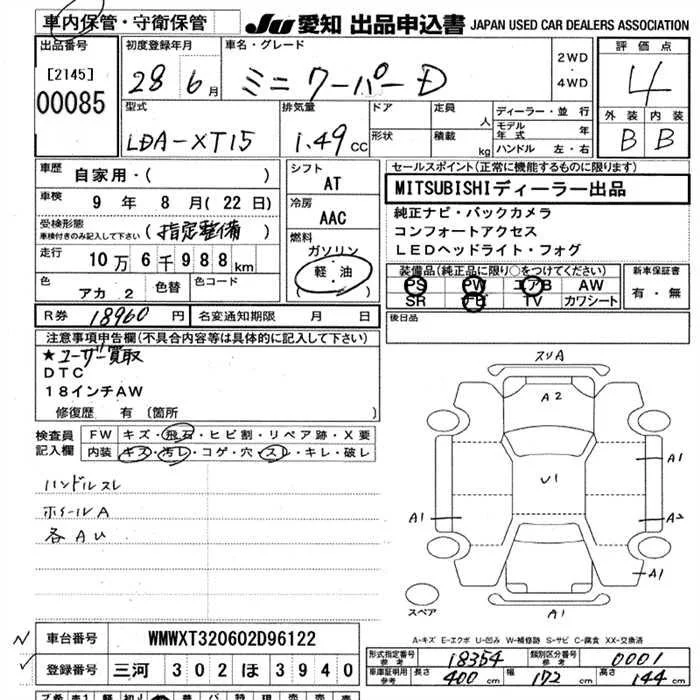 車内保管・守衛保管
JU 愛知 出品申込書 JAPAN USED CAR DEALERS ASSOCIATION
出品番号
[2145]
00085
初度登録年月
28 6月
車名・グレード
ミニ クーパーD
2WD
・
4WD
評価点
4
外装 内装
B B
型式
LDA-XT15
排気量
1.49 CC
ドア
形状
定員
人
積載
kg
ディーラー・並行
モデル年式 年
ハンドル 左・右
車歴
自家用・( )
車検
9 年 8 月 ( 22 日)
受検形態
車検付きのみ記入して下さい
(指定整備)
走行
10万 6千 9 8 8 km
色
アカ 2
色替
色コード
シフト
AT
冷房
AAC
燃料
ガソリン
・
軽・油
( )
セールスポイント(正常に機能するものに限ります)
MITSUBISHIディーラー出品
純正ナビ・バックカメラ
コンフォートアクセス
LEDヘッドライト・フォグ
装備品(純正品に限り○をつけてください)
PS PW エアB AW
SR ナビ TV カワシート
新車保証書
有・無
R券 18960 円
名変通知期限 月 日
後日品
注意事項申告欄(不具合内容等は具体的に記入して下さい)
★ユーザー買取
DTC
18インチAW
修復歴 有(箇所
検査員記入欄
FW キズ・飛石・ヒビ割・リペア跡・X要
内装 キズ・汚レ・コゲ・穴・スレ・キレ・破レ
ハンドルスレ
ホイールA
各AU
スリA
A2
U1
A1
A1
A2
A1
A1
スペア
A-キズ E-エクボ U-凹み W-補修跡 S-サビ C-腐食 XX-交換済
車台番号 WMWXT320602D96122
登録番号 三河 302 ほ 3940
形式指定番号
参考
18354
類別区分番号
参考
0001
車庫証明用
参考
長さ 400 cm
幅 172 cm
高さ 144 cm